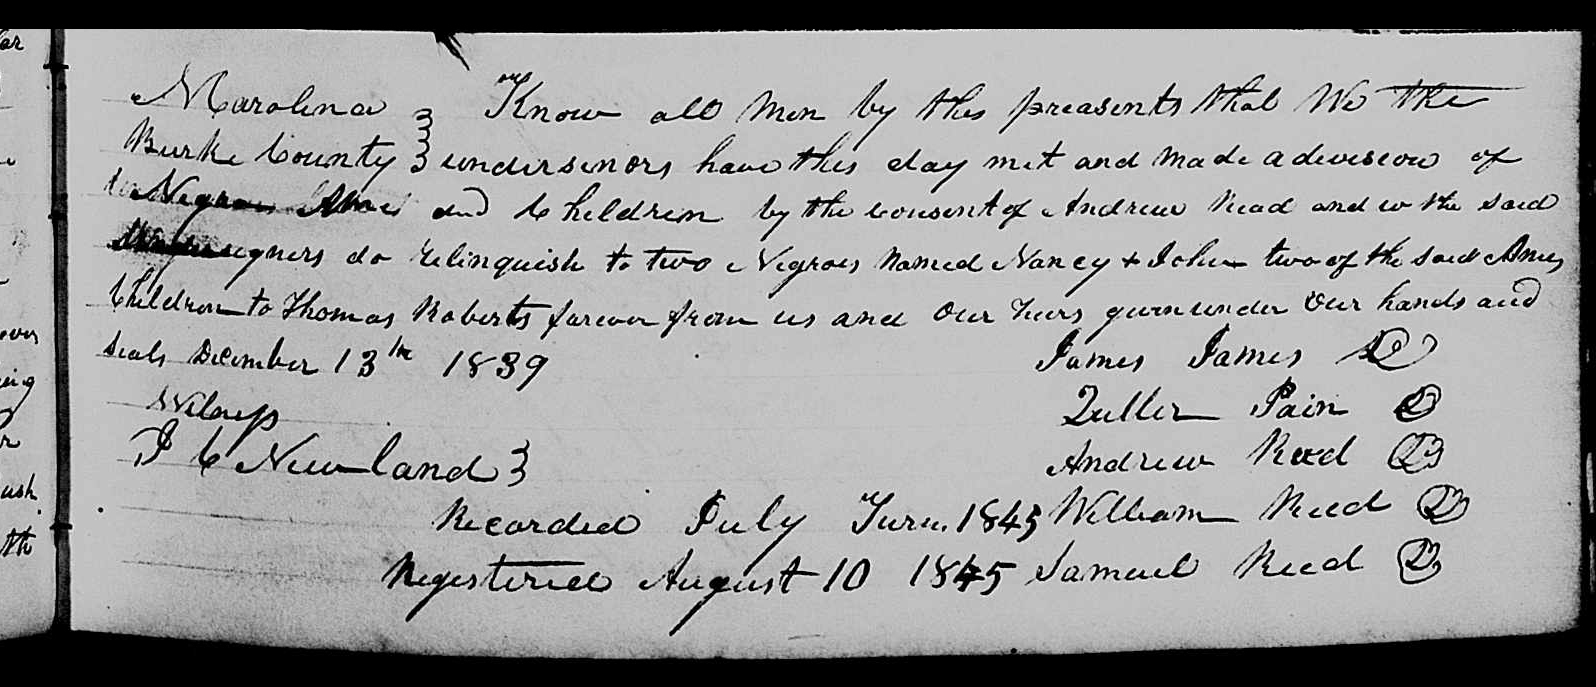 N Carolina } Know all Men by thes preasents that We the
Burke County } undersinors have this day met and made a devision of
Negroes Ame and Children by the Consent of Andrew Read and we the said
signers do relinquish to two Negroes named Nancy & John two of the said Ames
Children to Thomas Roberts forever from us and our heirs given under our hands and
Seals December 13th 1839
James James
Witness
Zuller Pain
J C Newland }
Andrew Reed
Recorded July Term 1845
William Reed
Registered August 10 1845
Samuel Reed
over
ush
th